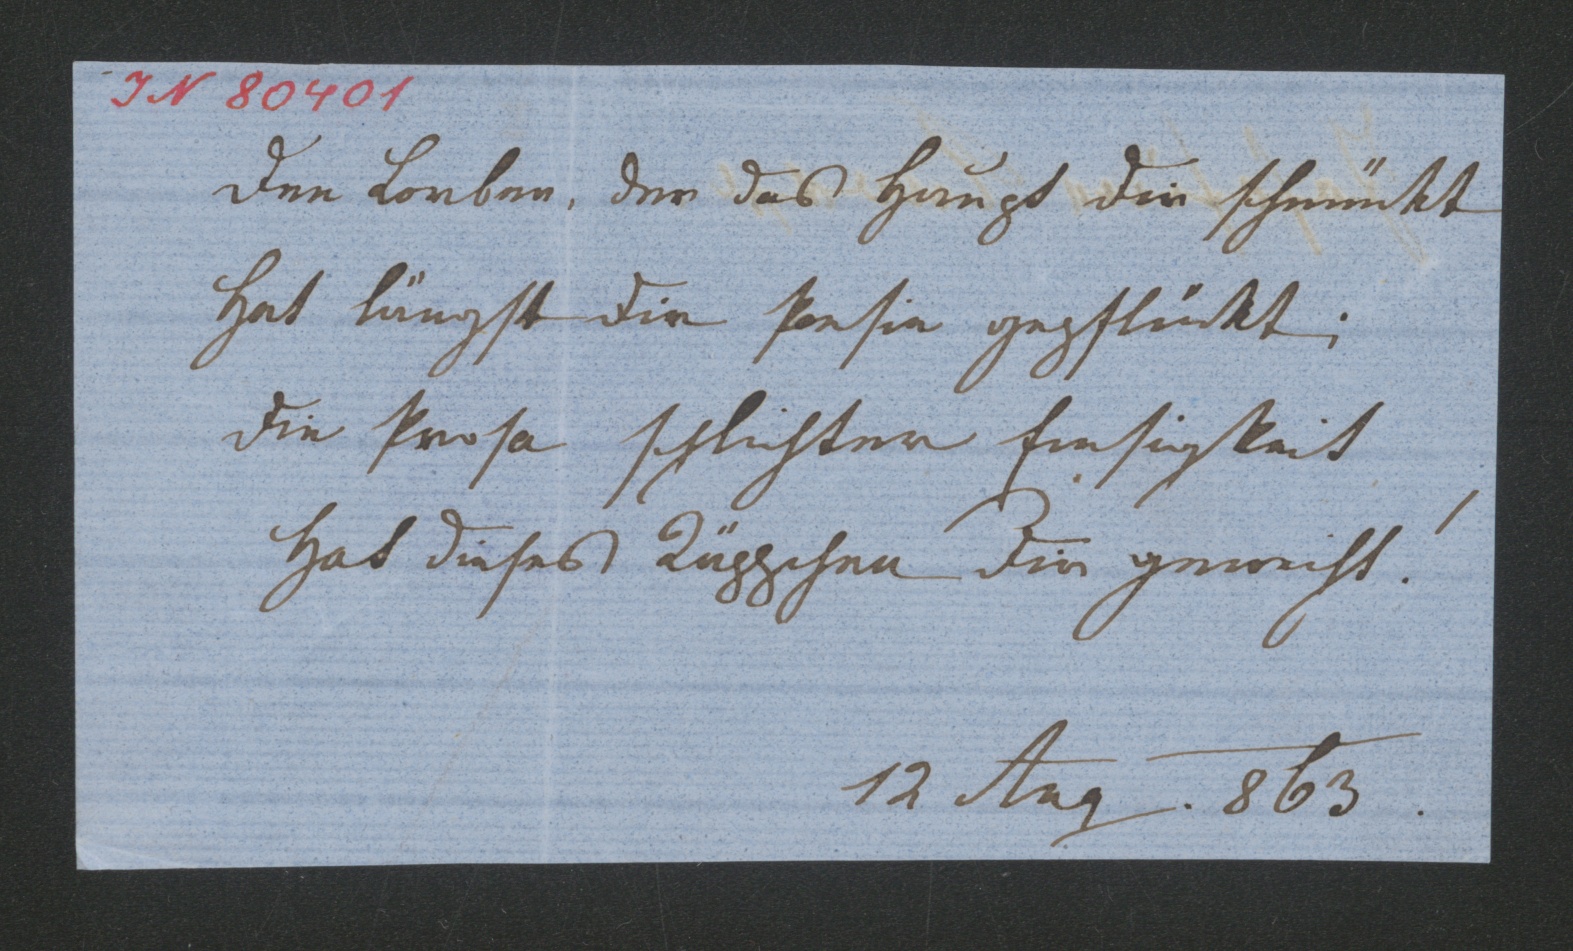 IN 80401
Den Lorber, der das Haupt Dir schmückt
Hat längst die Poesie gepflückt;
Die Prosa schlichter Emsigkeit
Hat dieses Käppchen Dir geweiht!
12 Aug. 863.